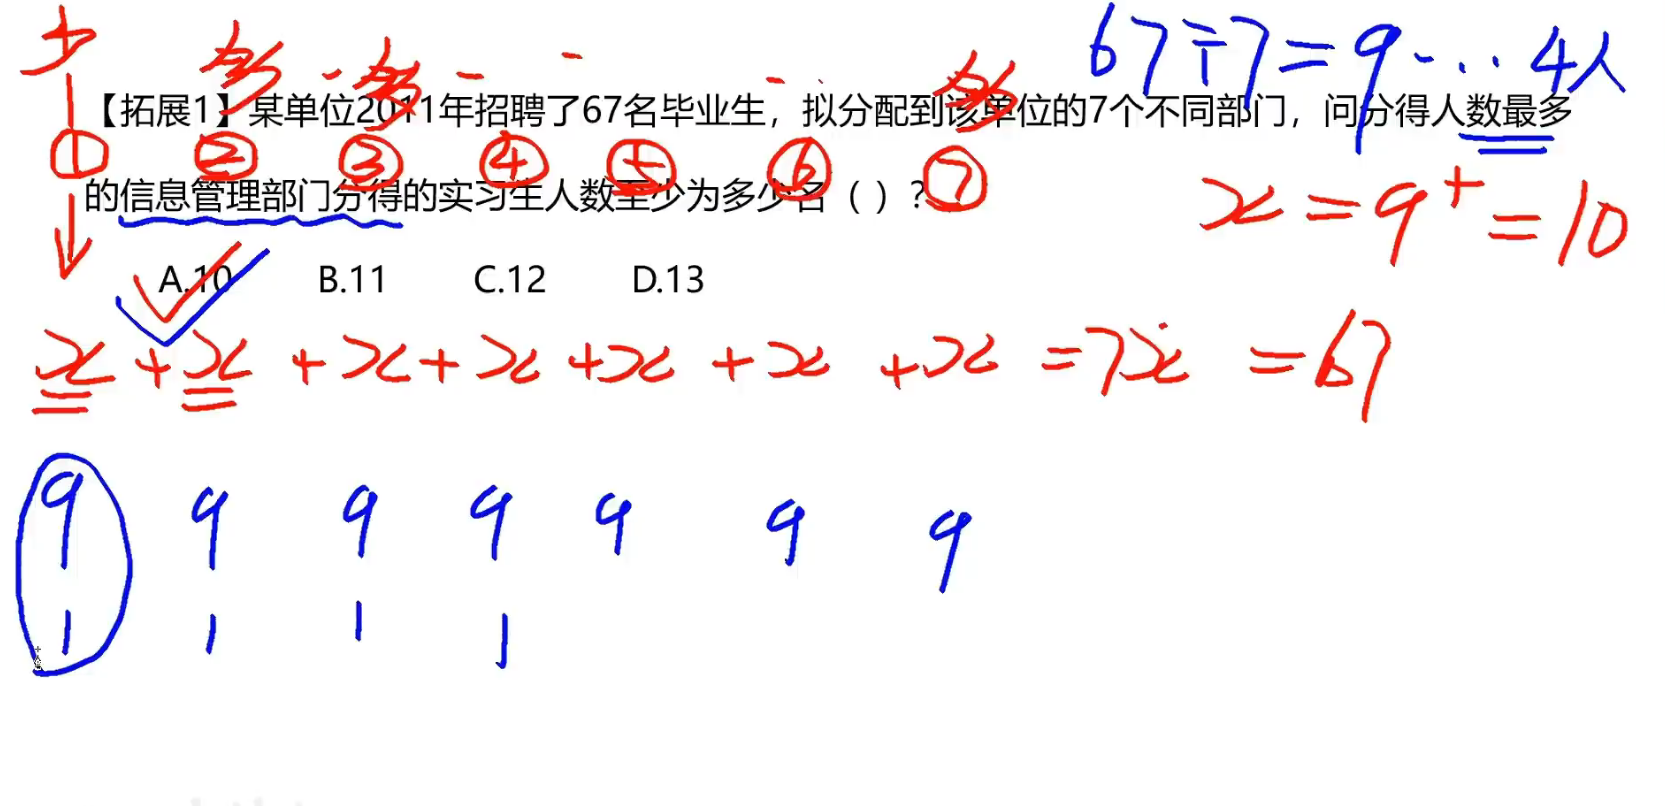 少 多 多 多 67÷7=9…4人
【拓展1】某单位2011年招聘了67名毕业生，拟分配到该单位的7个不同部门，问分得人数最多
① ② ③ ④ ⑤ ⑥ ⑦
的信息管理部门分得的实习生人数至少为多少名（ ）？
x=9⁺=10
A.10 B.11 C.12 D.13
x+x+x+x+x+x+x=7x=67
9 9 9 9 9 9 9
1 1 1 1